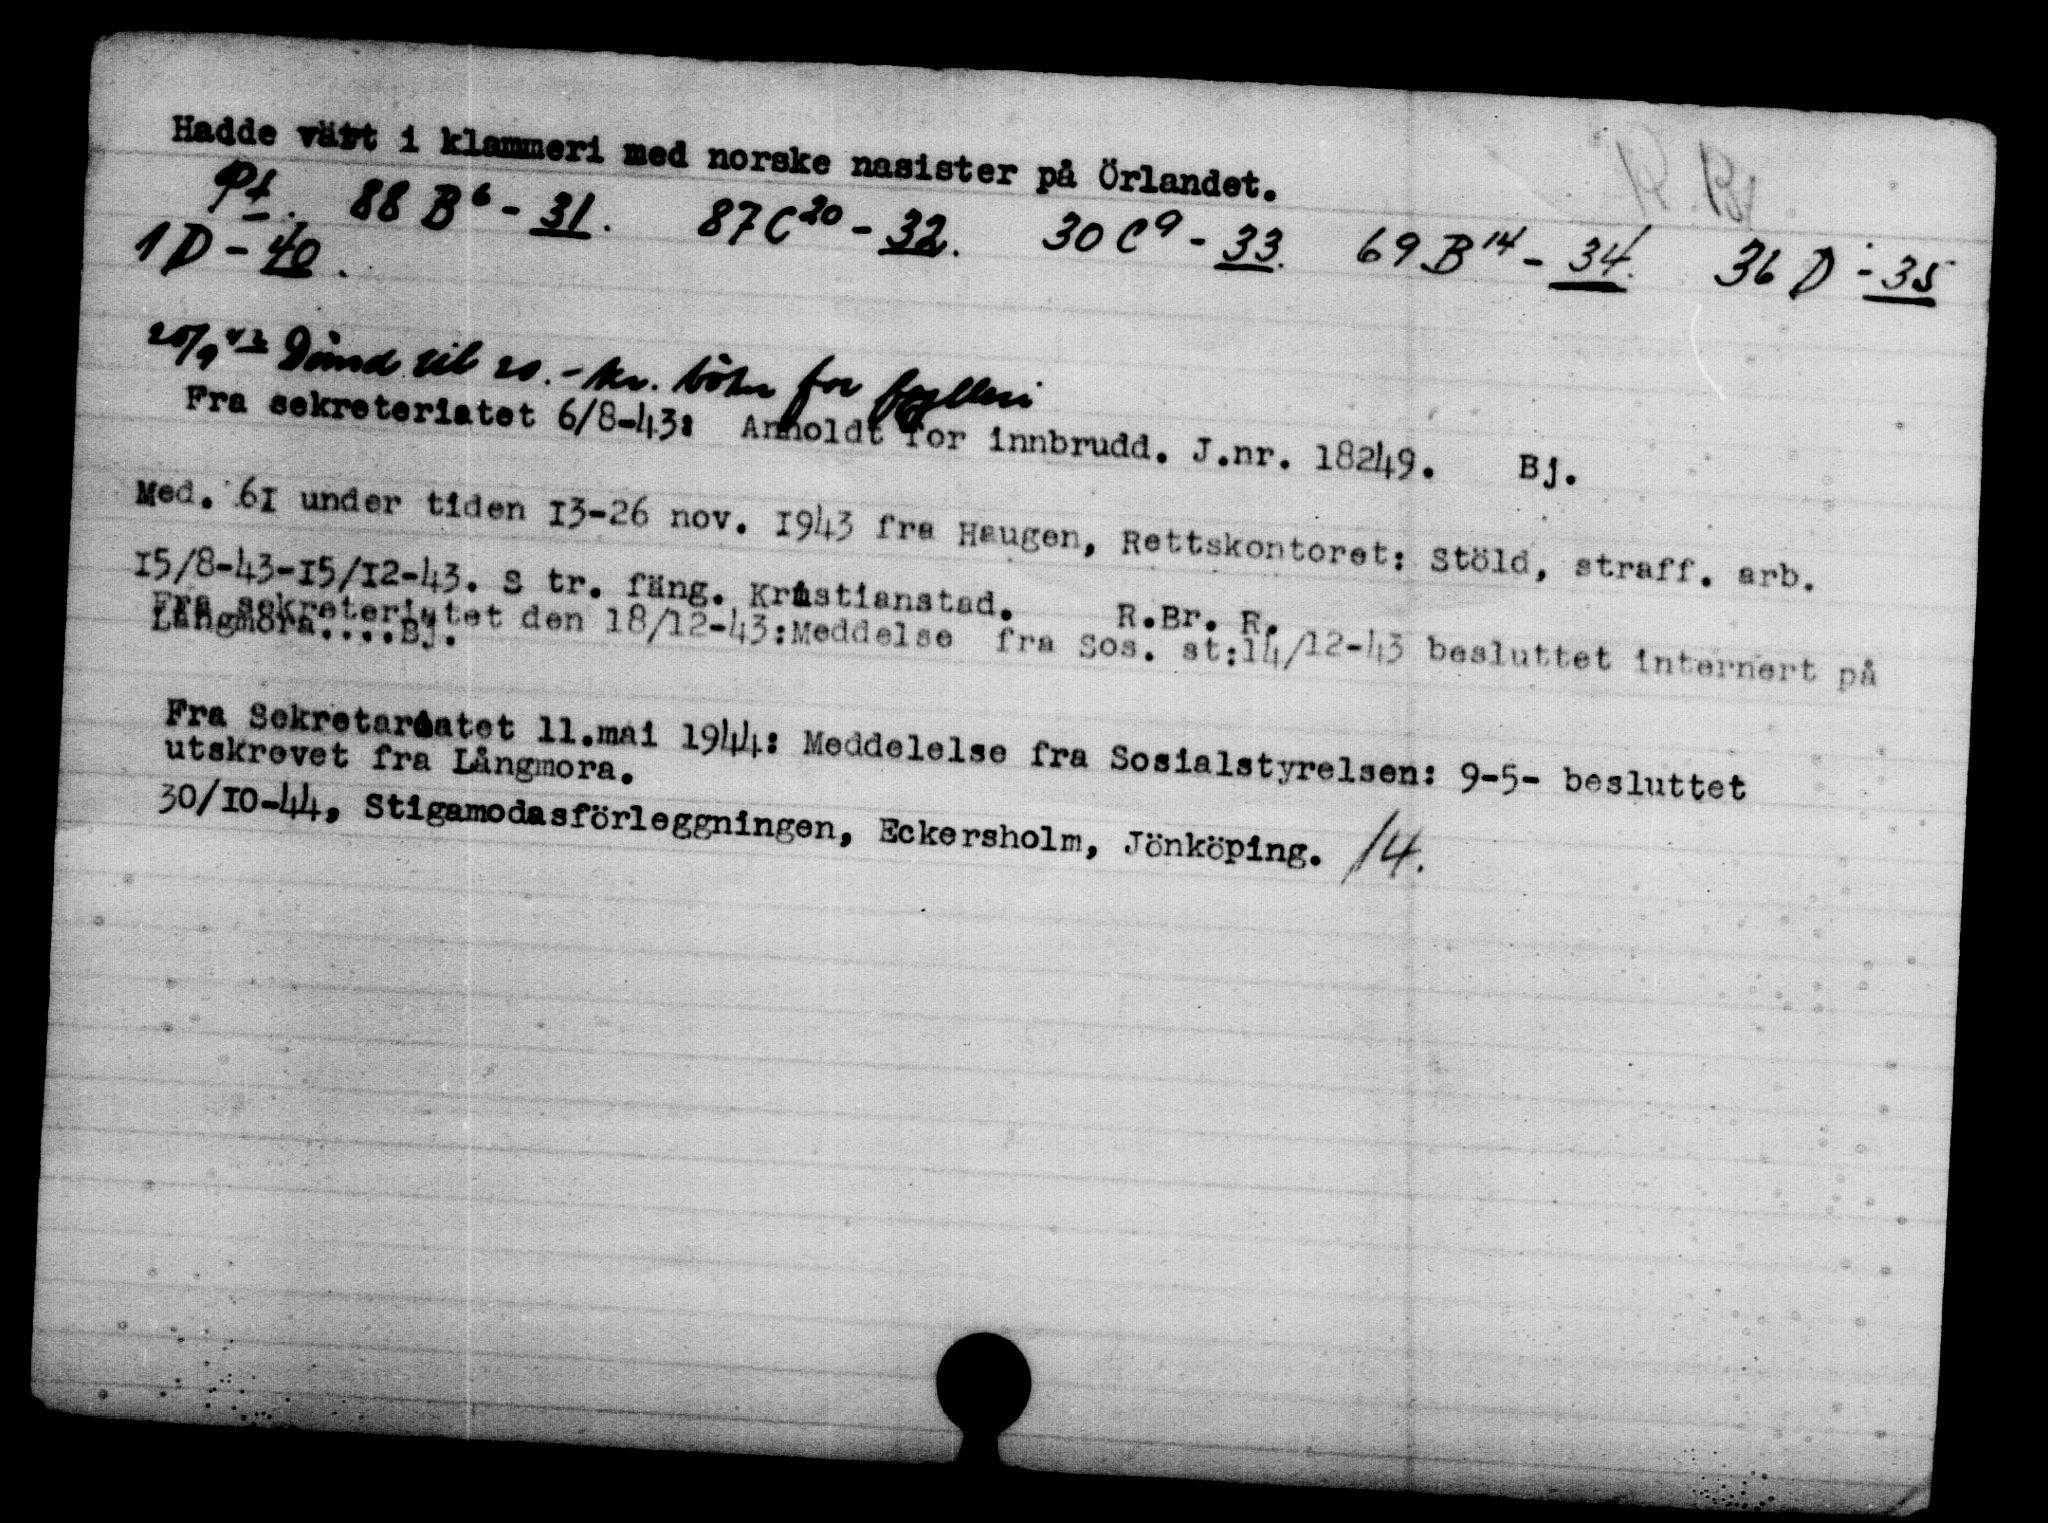 Hadde vært i klammeri med norske nasister på Örlandet.
Pt. 88 B⁶ - 31. 87 C²⁰ - 32. 30 C⁹ - 33. 69 B¹⁴ - 34. 36 D - 35
1 D - 40.
20/9 42 Dömd til 20.- kr. böter for fylleri
Fra sekreteriatet 6/8-43: Anholdt for innbrudd. J.nr. 18249. Bj.
Med. 61 under tiden 13-26 nov. 1943 fra Haugen, Rettskontoret: Stöld, straff. arb.
15/8-43-15/12-43. S tr. fäng. Kristianstad. R.Br. R.
Fra sekreteriatet den 18/12-43: Meddelse fra Sos. st:14/12-43 besluttet internert på
Långmora....Bj.
Fra Sekretariatet 11.mai 1944: Meddelelse fra Sosialstyrelsen: 9-5- besluttet
utskrevet fra Långmora.
30/10-44, Stigamodasförleggningen, Eckersholm, Jönköping. /4.